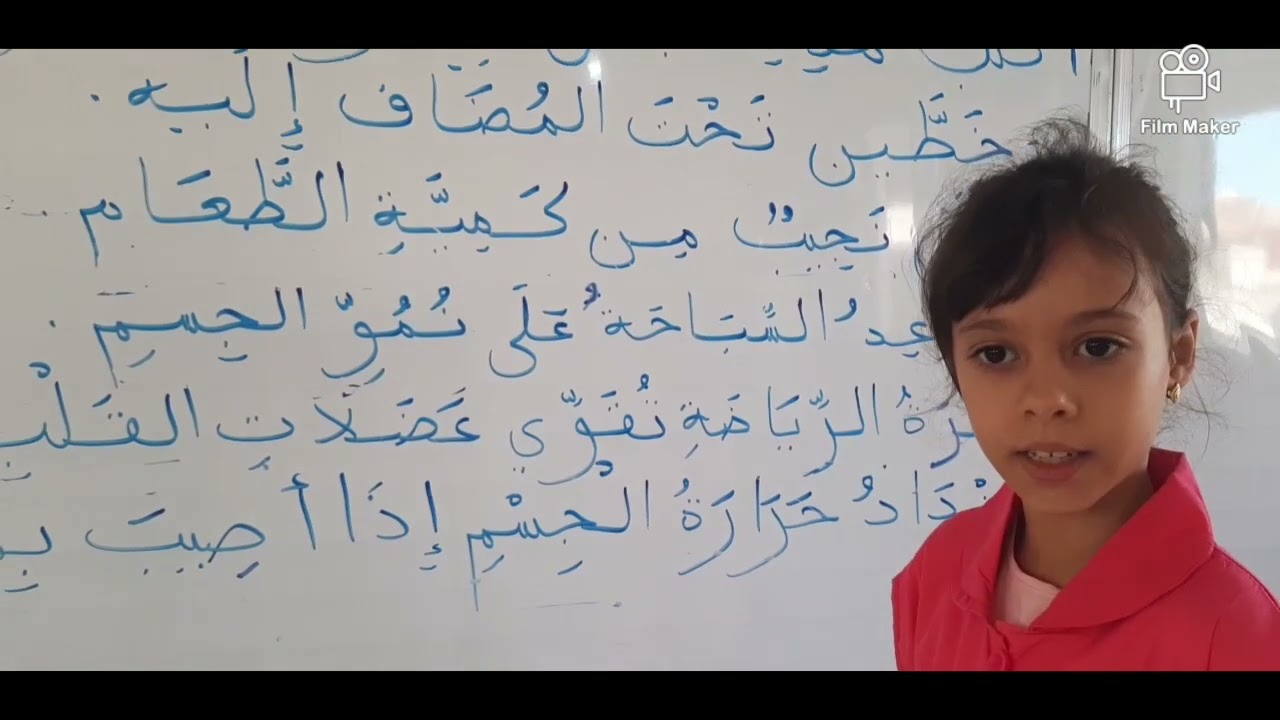 خَطَّين تَحْتَ المُضَاف إِلَيه .
نَجِيبٌ مِن كَمِيَّةِ الطَّعَام
السِّبَاحَةُ عَلَى نُمُوِّ الجِسمِ .
الرِّيَاضَةِ تُقَوِّي عَضَلَاتِ القَلْبِ
حَرَارَةُ الْجِسْمِ إِذَا أصِيبَ
Film Maker